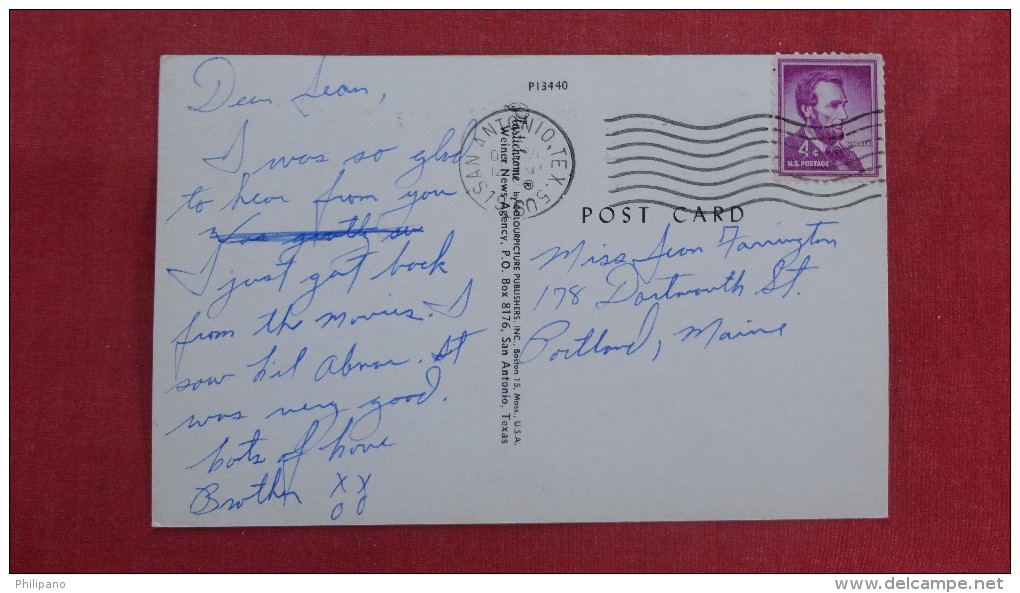 Dear Jean,
I was so glad
to hear from you
I just got back
from the movies. I
saw Lil Abner. It
was very good.
lots of love
Brother XX
OO
P13440
Plastichrome ® by COLOURPICTURE PUBLISHERS, INC., Boston 15, Mass., U.S.A.
Weiner News Agency, P.O. Box 8176, San Antonio, Texas
SAN ANTONIO, TEX.
4¢
LINCOLN
U.S. POSTAGE
POST CARD
Miss Jean Farrington
178 Dartmouth St.
Portland, Maine
Philipano
http://www.delcampe.net